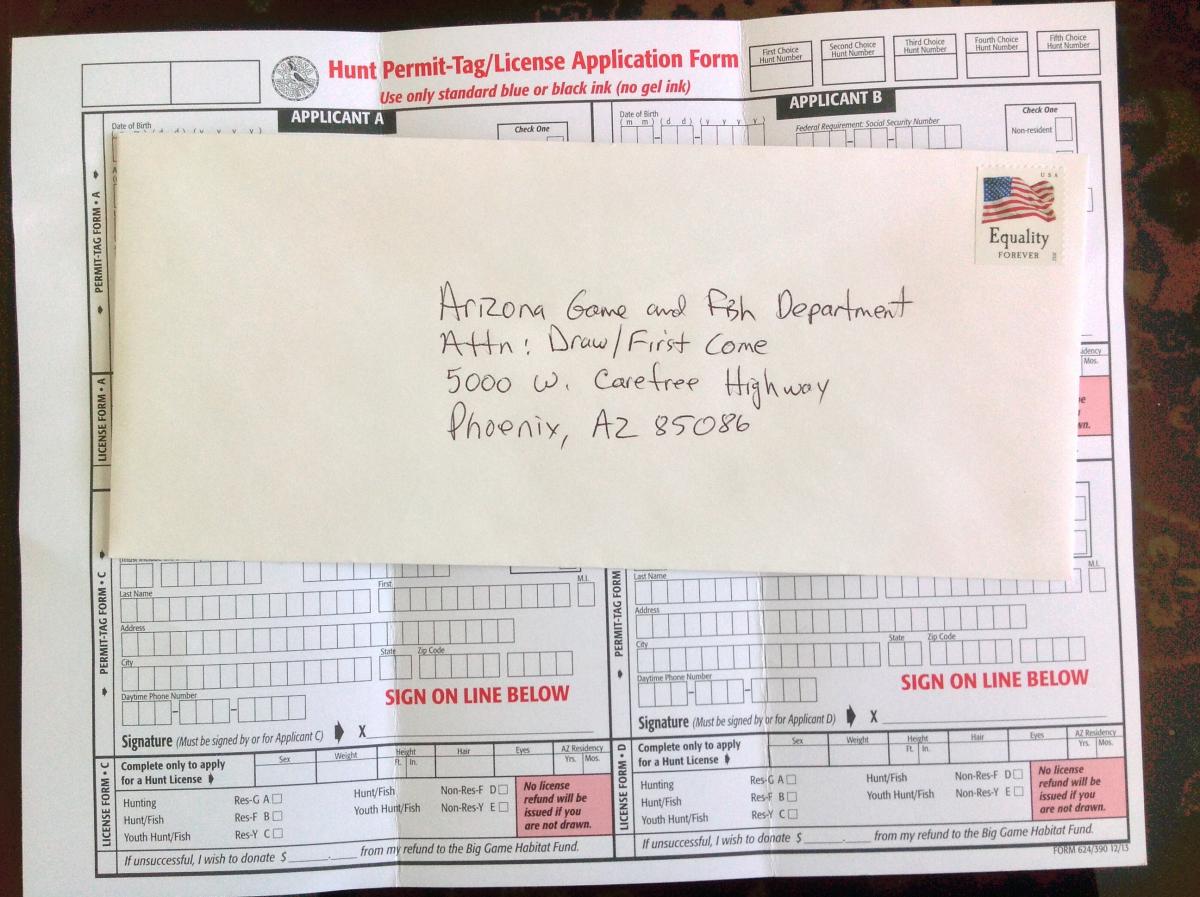 Hunt Permit-Tag/License Application Form
Use only standard blue or black ink (no gel ink)
First Choice
Hunt Number
Second Choice
Hunt Number
Third Choice
Hunt Number
Fourth Choice
Hunt Number
Fifth Choice
Hunt Number
APPLICANT A
Date of Birth
(m m) (d d) (y y y y)
Check One
APPLICANT B
Date of Birth
(m m) (d d) (y y y y)
Federal Requirement: Social Security Number
Check One
Non-resident
PERMIT-TAG FORM • A
LICENSE FORM • A
USA
Equality
FOREVER
Arizona Game and Fish Department
Attn: Draw/First Come
5000 W. Carefree Highway
Phoenix, AZ 85086
Mos.
PERMIT-TAG FORM • C
Last Name
First
M.I.
Address
City
State
Zip Code
Daytime Phone Number
SIGN ON LINE BELOW
Signature (Must be signed by or for Applicant C) X
LICENSE FORM • C
Complete only to apply
for a Hunt License
Sex
Weight
Height
Ft. In.
Hair
Eyes
AZ Residency
Yrs. Mos.
Hunting Res-G A
Hunt/Fish Res-F B
Youth Hunt/Fish Res-Y C
Hunt/Fish Non-Res-F D
Youth Hunt/Fish Non-Res-Y E
No license
refund will be
issued if you
are not drawn.
If unsuccessful, I wish to donate $ ______.____ from my refund to the Big Game Habitat Fund.
PERMIT-TAG FORM
Last Name
M.I.
Address
City
State
Zip Code
Daytime Phone Number
SIGN ON LINE BELOW
Signature (Must be signed by or for Applicant D) X
LICENSE FORM • D
Complete only to apply
for a Hunt License
Sex
Weight
Height
Ft. In.
Hair
Eyes
AZ Residency
Yrs. Mos.
Hunting Res-G A
Hunt/Fish Res-F B
Youth Hunt/Fish Res-Y C
Hunt/Fish Non-Res-F D
Youth Hunt/Fish Non-Res-Y E
No license
refund will be
issued if you
are not drawn.
If unsuccessful, I wish to donate $ ______.____ from my refund to the Big Game Habitat Fund.
FORM 624/390 12/13